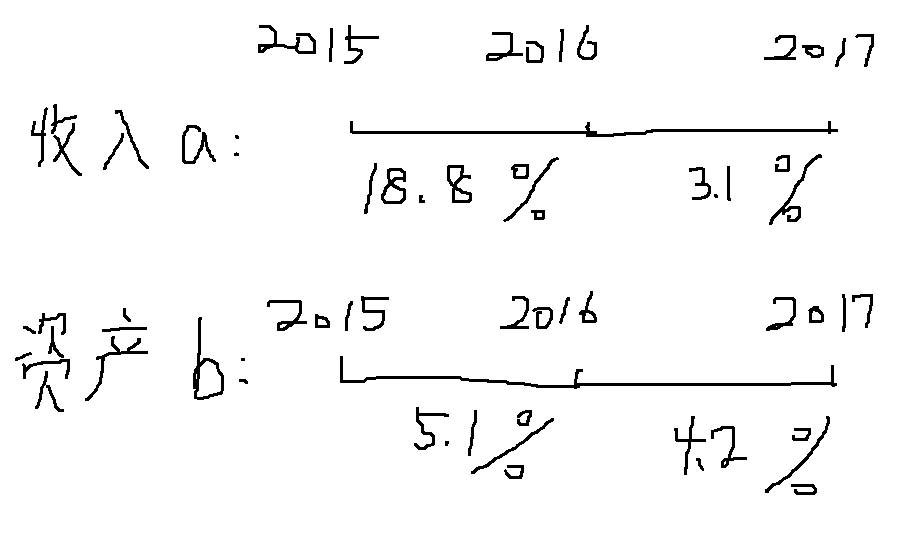 2015 2016 2017
收入 a:
18.8 % 3.1 %
2015 2016 2017
资产 b:
5.1 % 4.2 %